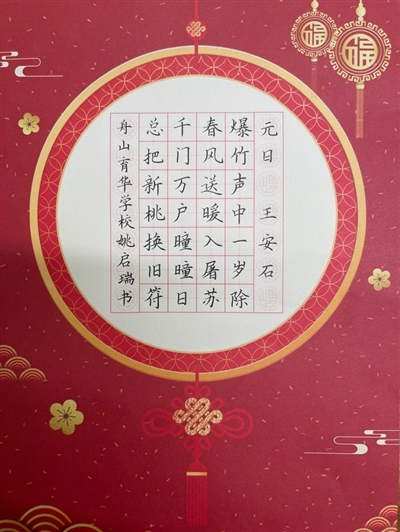 元日 王安石
爆竹声中一岁除
春风送暖入屠苏
千门万户曈曈日
总把新桃换旧符
舟山育华学校姚启瑞书
福
福